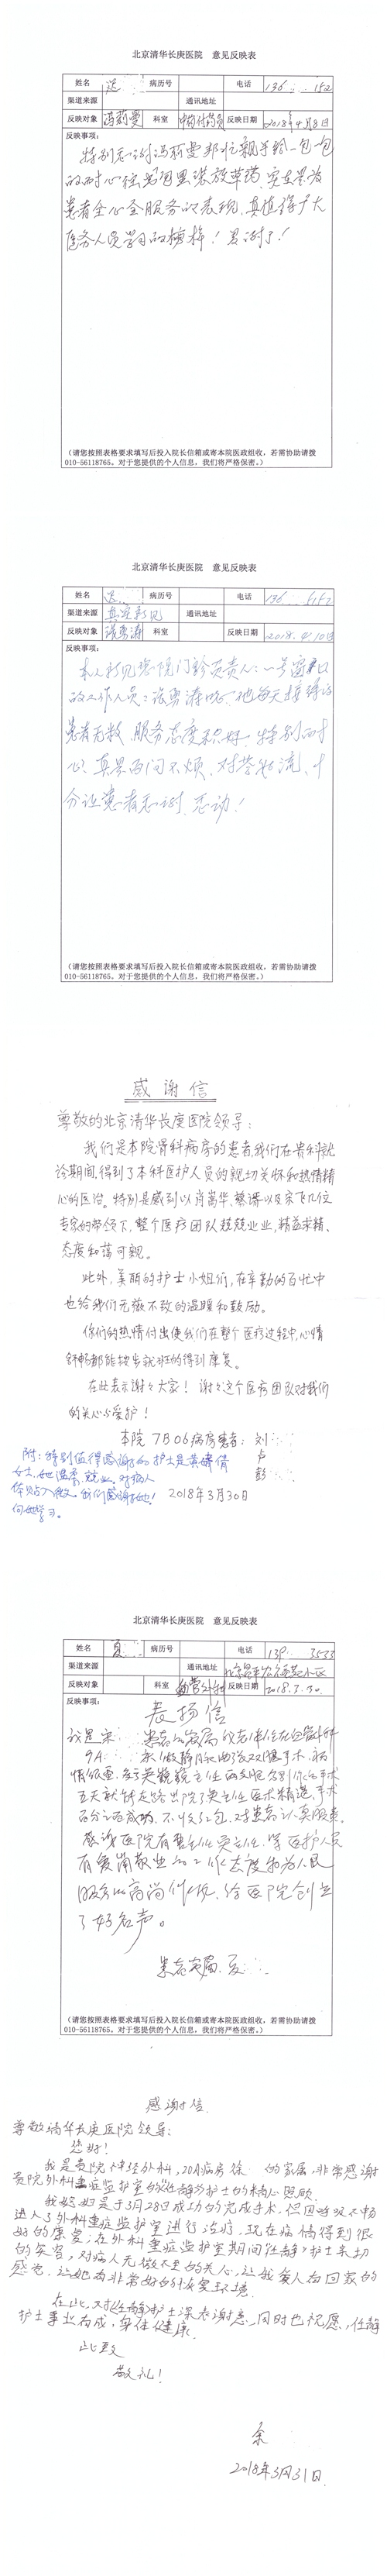 北京清华长庚医院 意见反映表
姓名 迟 病历号 电话 136 152
渠道来源 通讯地址
反映对象 冯莉曼 科室 中药付药员 反映日期 2018年4月8日
反映事项:
特别感谢冯莉曼帮忙亲手给一包一包
的耐心往
患者全心全服务的表现,真值得广大
医务人员学习的榜样!感谢了!
(请您按照表格要求填写后投入院长信箱或寄本院医政组收,若需协助请拨
010-56118765。对于您提供的个人信息,我们将严格保密。)
北京清华长庚医院 意见反映表
姓名 迟 病历号 电话 136 5152
渠道来源 通讯地址
反映对象 张勇涛 科室 反映日期 2018.4/10日
反映事项:
本人 门诊负责人:一号窗口
的工作人员:张勇涛 他每天接待
患者无数,服务态度积好,特别耐
心,真是百问不烦,对答如流,十
分让患者感谢、感动!
(请您按照表格要求填写后投入院长信箱或寄本院医政组收,若需协助请拨
010-56118765。对于您提供的个人信息,我们将严格保密。)
感谢信
尊敬的北京清华长庚医院领导:
我们是本院骨科病房的患者,我们在贵科就
诊期间,得到了本科医护人员的亲切关怀和热情精
心的医治。特别是感到以肖嵩华、 以及宋飞几位
专家的带领下,整个医疗团队兢兢业业,精益求精、
态度和蔼可亲。
此外,美丽的护士小姐们,在辛勤的百忙中
也给我们无微不致的温暖和鼓励。
你们的热情付出使我们在整个医疗过程中,心情
舒畅都能按步就班的得到康复。
在此表示谢谢大家! 谢谢这个医疗团队对我们
的关心与爱护!
本院 7B06病房患者: 刘
卢
彭
附:特别值得感谢的护士是黄婧倩
女士,她温柔、敬业、对病人
体贴入微。我们感谢她!
向她学习。
2018年3月30日
北京清华长庚医院 意见反映表
姓名 夏 病历号 电话 139 3533
渠道来源 通讯地址 北京昌平 小区
反映对象 科室 血管外科 反映日期 2018.3.30.
反映事项:
表扬信
我是宋 患者的家属,
9A
情很重,
五天就能走路出院了 主任医术精造,手术
百分之百成功,不收红包,对患者认真服务。
感谢医院有 主任 主任 等医护人员
有爱岗敬业的工作态度和为人民
服务的高尚 ,给医院创立
了好名声。
患者家属:夏
(请您按照表格要求填写后投入院长信箱或寄本院医政组收,若需协助请拨
010-56118765。对于您提供的个人信息,我们将严格保密。)
感谢信
尊敬清华长庚医院领导:
您好!
我是贵院神经外科,20A病房徐 的家属,非常感谢
贵院外科重症监护室的《任静》护士的精心照顾。
我媳妇是于3月28日成功的完成手术,但因呼吸不畅
进入了外科重症监护室进行治疗,现在病情得到很
好的康复;在外科重症监护室期间《任静》护士亲切
的笑容,对病人无微不至的关心,让我爱人有回家的
感觉,让她有非常好的 环境。
在此,对《任静》护士深表谢意,同时也祝愿,任静
护士事业有成,身体健康.
此致
敬礼!
余
2018年3月31日.